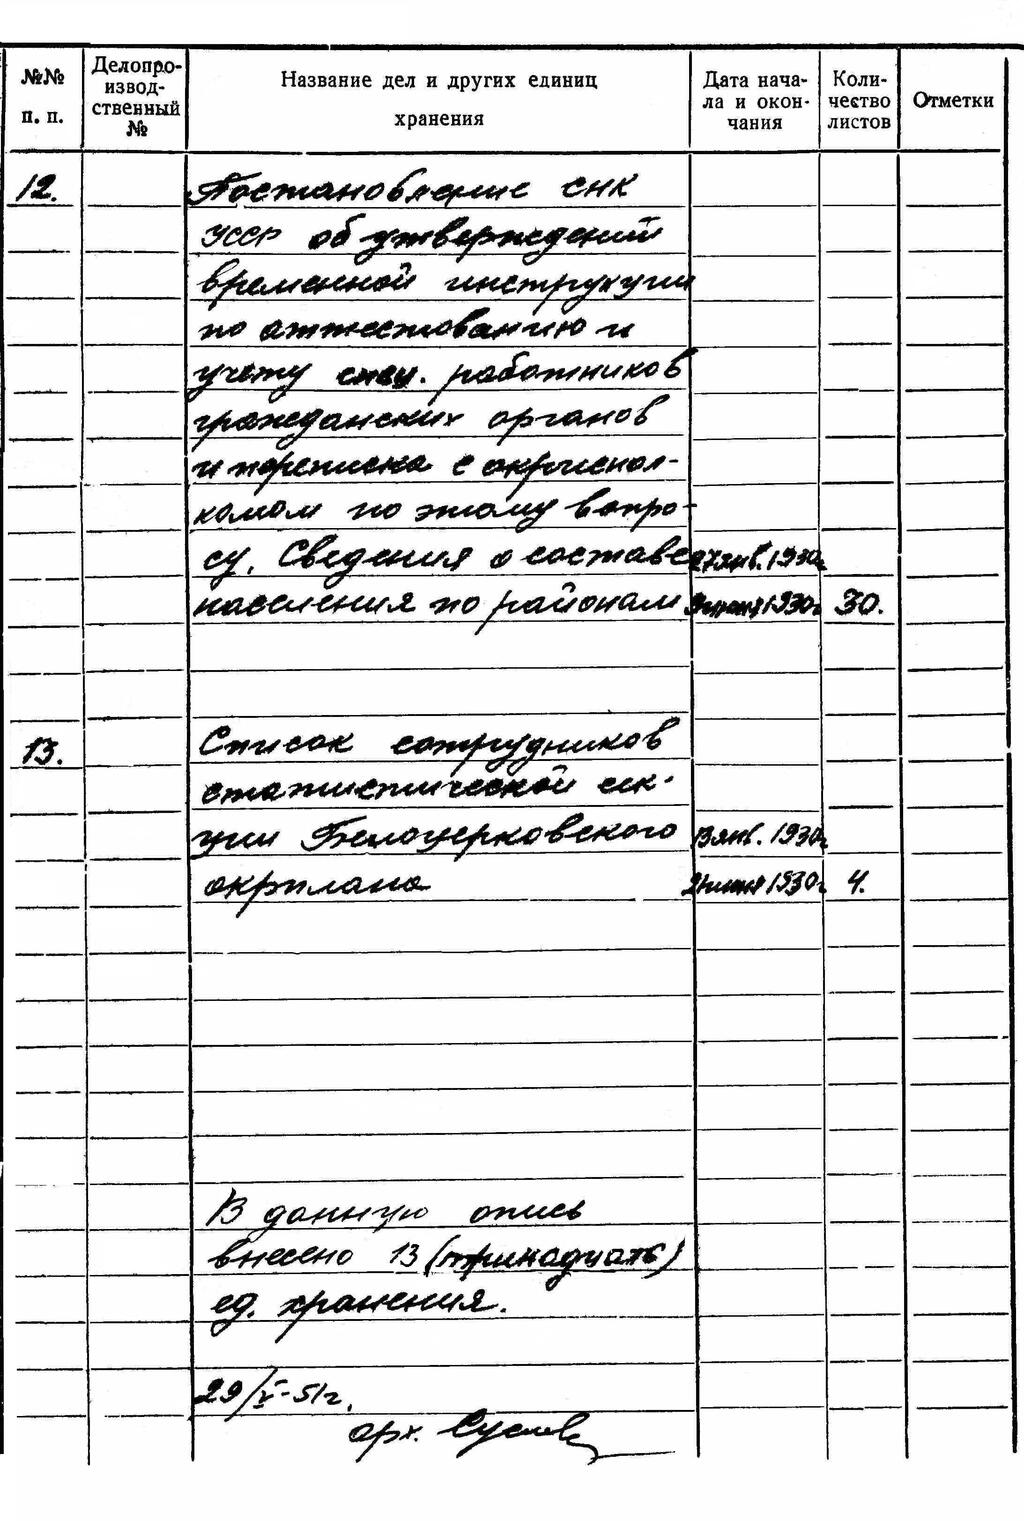 №№ п. п. Делопро-извод-ственный № Название дел и других единиц хранения Дата нача-ла и окон-чания Коли-чество листов Отметки
12. Постановление СНК
УССР об утверждений
временной инструкции
по аттестованию и
учету спец. работников
гражданских органов
и переписка с окрыспол-
комом по этому вопро-
су. Сведения о составе 27 янв. 1930г.
населения по районам 9 июня 1930г 30.
13. Список сотрудников
статистической сек-
ции Белоцерковского 13 янв. 1930г.
окрплана 21 июня 1930г. 4.
В данную опись
внесено 13 (тринадцать)
ед. хранения.
29/V-51г.
арх.